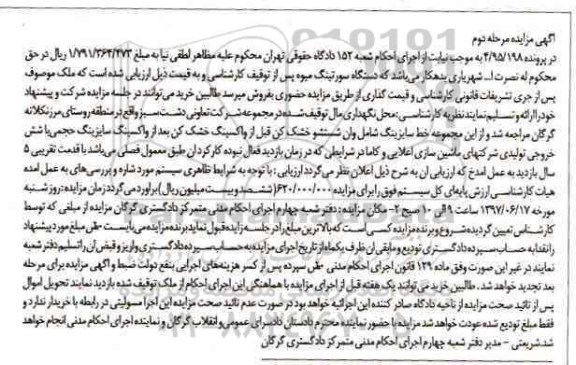 آگهی مزایده مرحله دوم
در پرونده ۴/۹۵/۱۹۸ به موجب نیابت از اجرای احکام شعبه ۱۵۲ دادگاه حقوقی تهران محکوم علیه مظاهر لطفی نیا به مبلغ ۱/۷۹۱/۳۶۴/۴۷۳ ریال در حق
محکوم له نصرت ا... شهریاری بدهکار می‌باشد که دستگاه سورتینگ میوه پس از توقیف کارشناسی و به قیمت ذیل ارزیابی شده است که ملک موصوف
پس از جری تشریفات قانونی کارشناسی و قیمت گذاری از طریق مزایده حضوری بفروش میرسد طالبین خرید می‌توانند در جلسه مزایده شرکت و پیشنهاد
خود را ارائه و تسلیم نمایند نظریه کارشناسی: محل نگهداری مال توقیف شده در مجموعه شرکت تعاونی دشت سبز واقع در منطقه روستای مرزنکلاته
گرگان مراجعه شد و از این مجموعه خط سایزینگ شامل وان شستشو خشک کن قبل از واکسینگ خشک کن بعد از واکسینگ سایزینگ حجمی با شش
خروجی تولیدی شرکتهای ماشین سازی اعلایی و کاما در شرایطی که در زمان بازدید فعال نبوده کارکردان طبق معمول فصلی می‌باشد با قدمت تقریبی ۵
سال بازدید به عمل آمد که ارزیابی آن به شرح ذیل اعلان نظر می‌گردد ارزیابی: با توجه به شرایط ظاهری سیستم مورد شاره و بررسی‌های به عمل آمده
هیات کارشناسی ارزش پایه‌ای کل سیستم فوق را برای مزایده ۶۲۰/۰۰۰/۰۰۰ (ششصد و بیست میلیون ریال) برآورد می‌گردد زمان مزایده: روز شنبه
مورخه ۱۳۹۷/۰۶/۱۷ ساعت ۹ الی ۱۰ صبح ۲- مکان مزایده: دفتر شعبه چهارم اجرای احکام مدنی متمرکز دادگستری گرگان مزایده از مبلغی که توسط
کارشناس تعیین گردیده شروع و برنده مزایده کسی است که بالاترین مبلغ را در جلسه مزایده قبول نماید برنده مزایده می‌بایست ۱۰٪ مبلغ مورد پیشنهاد
را نقدا به حساب سپرده دادگستری تودیع و مابقی آن ظرف یکماه از تاریخ اجرای مزایده به حساب سپرده دادگستری واریز و قبض آن را تسلیم دفتر شعبه
نمایند در غیر این صورت وفق ماده ۱۲۹ قانون اجرای احکام مدنی ۱۰٪ سپرده پس از کسر هزینه‌های اجرایی بنفع دولت ضبط و آگهی مزایده برای مرحله
بعد تجدید خواهد شد. طالبین خرید می‌توانند یک هفته قبل از اجرای مزایده با هماهنگی این اجرای احکام از ملک توقیف شده بازدید نمایند تحویل اموال
پس از تائید صحت مزایده از ناحیه دادگاه صادر کننده این اجرائیه خواهد بود در صورت عدم تائید صحت مزایده این اجرا مسولیتی در رابطه با خریدار ندارد و
فقط مبلغ تودیع شده عودت خواهد شد مزایده با حضور نماینده محترم دادستان دادسرای عمومی و انقلاب گرگان و نماینده اجرای احکام مدنی انجام خواهد
شد. شریعتی - مدیر دفتر شعبه چهارم اجرای احکام مدنی متمرکز دادگستری گرگان